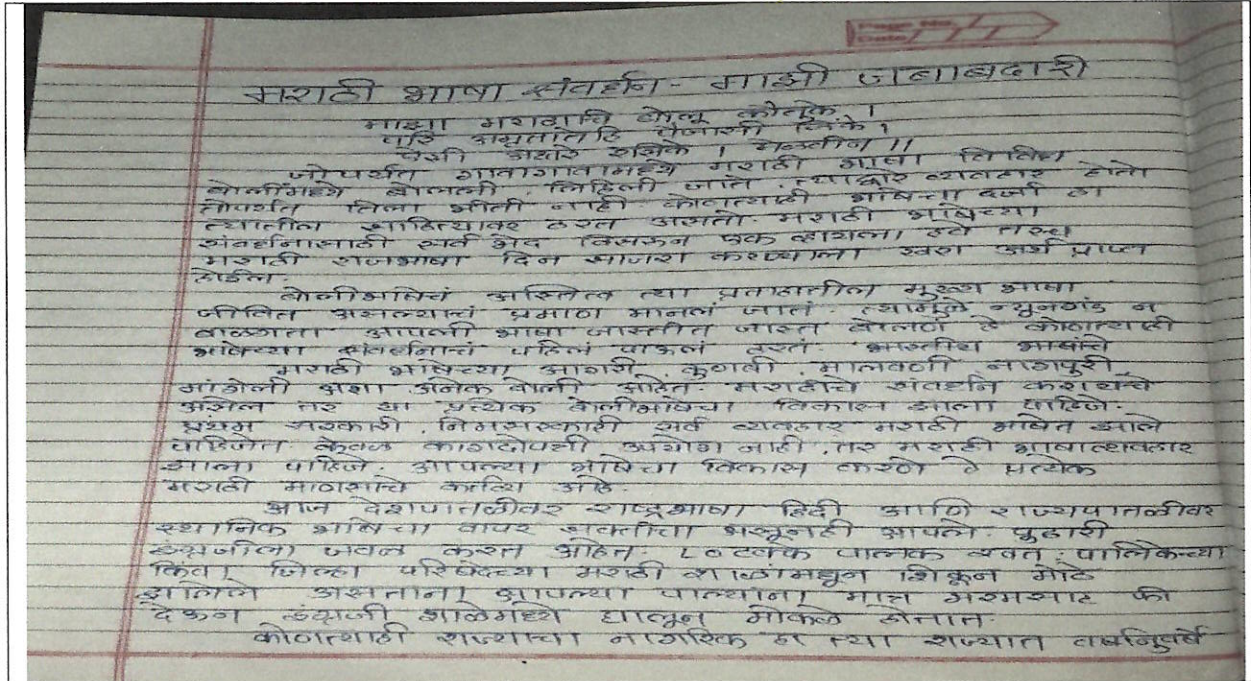 Page No.
Date
मराठी भाषा संवर्धन - माझी जबाबदारी
माझा मराठाचि बोलू कौतुके ।
परि अमृतातेहि पैजासी जिंके ।
ऐसी अक्षरे रसिके । मेळवीन ॥
जोपर्यंत गावागावामध्ये मराठी भाषा विविध
बोलींमध्ये बोलली, लिहिली जाते, त्याद्वारे व्यवहार होतो
तोपर्यंत तिला भीती नाही. कोणत्याही भाषेचा दर्जा हा
त्यातील साहित्यावर ठरत असतो. मराठी भाषेच्या
संवर्धनासाठी सर्व भेद विसरून एक व्हायला हवे तरच
मराठी राजभाषा दिन साजरा करण्याला खरा अर्थ प्राप्त
होईल.
बोलीभाषेचं अस्तित्व त्या प्रवाहातील मुख्य भाषा
जीवित असल्याचं प्रमाण मानलं जातं. त्यामुळे न्यूनगंड न
बाळगता आपली भाषा जास्तीत जास्त बोलणे हे कोणत्याही
भाषेच्या संवर्धनाचं पहिलं पाऊल ठरतं. भारतीय भाषांचे
मराठी भाषेच्या आगरी, कुणबी, मालवणी नागपुरी,
मांगेली अशा अनेक बोली आहेत. मराठीचे संवर्धन करायचे
असेल तर या प्रत्येक बोलीभाषेचा विकास झाला पाहिजे.
प्रथम सरकारी, निमसरकारी सर्व व्यवहार मराठी भाषेत झाले
पाहिजेत केवळ कागदोपत्री उपयोग नाही, तर मराठी भाषाव्यवहार
झाला पाहिजे. आपल्या भाषेचा विकास करणे हे प्रत्येक
मराठी माणसाचे कर्तव्य आहे.
आज देशपातळीवर राष्ट्रभाषा हिंदी आणि राज्यपातळीवर
स्थानिक भाषेचा वापर सक्तीचा असूनही आपले पुढारी
इंग्रजीला जवळ करत आहेत. ८० टक्के पालक स्वत: पालिकेच्या
किंवा जिल्हा परिषदेच्या मराठी शाळांमधून शिकून मोठे
झालेले असताना आपल्या पाल्याना मात्र भरमसाट फी
देऊन इंग्रजी शाळेमध्ये घालून मोकळे होतात.
कोणत्याही राज्याचा नागरिक हा त्या राज्यात वर्षानुवर्षे